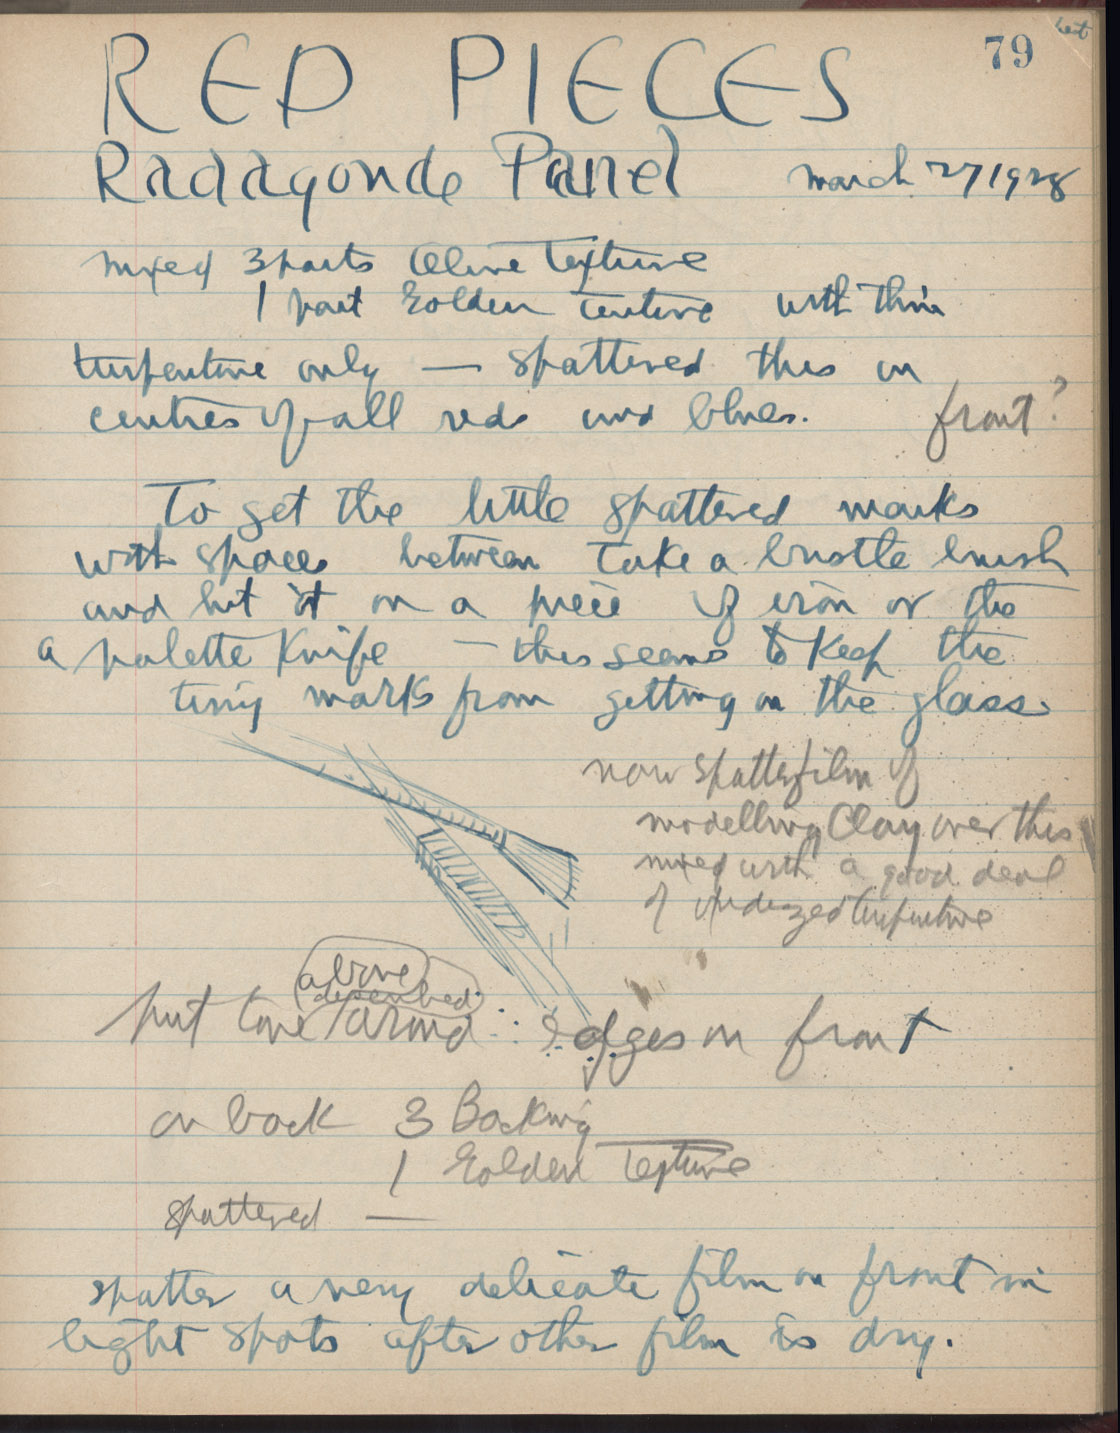 79
RED PIECES
Radagonde Panel march 27 1928
mixed 3 parts Olive Texture
1 part Golden Texture with thin
turpentine only — spattered this in
centres of all reds and blues. front?
To get the little spattered marks
with spaces between take a bristle brush
and hit it on a piece of iron or the
a palette Knife — this seems to keep the
tiny marks from getting on the glass.
now spatter film of
modelling Clay over this
mixed with a good deal
of turpentine
above
described
put tone around edges on front
on back 3 Backing
1 Golden Texture
spattered —
spatter a very delicate film on front in
light spots after other film is dry.